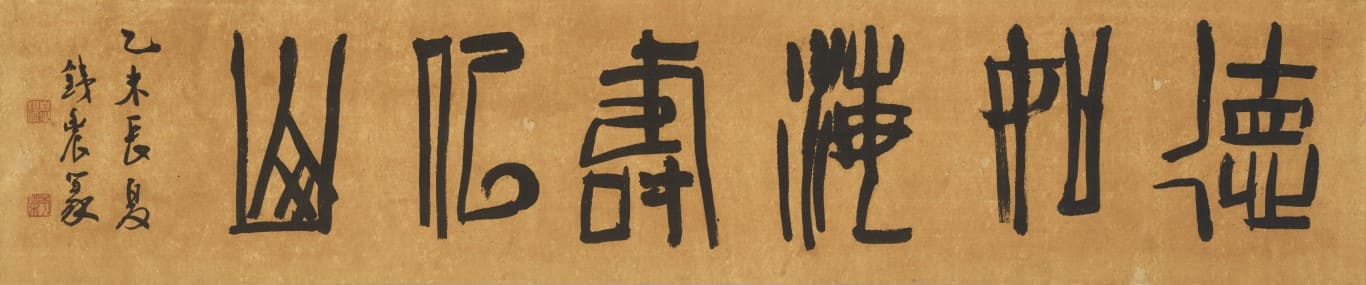 德如海壽似山
乙未長夏
銕農篆